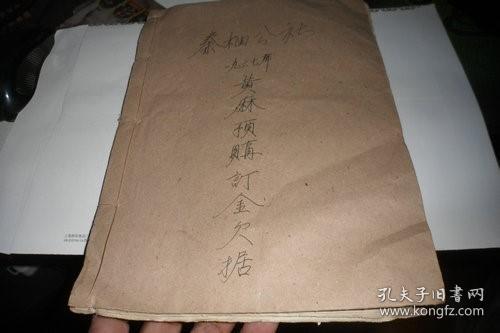 公社
一九六七年
黄麻預購訂金欠据
孔夫子旧书网
www.kongfz.com